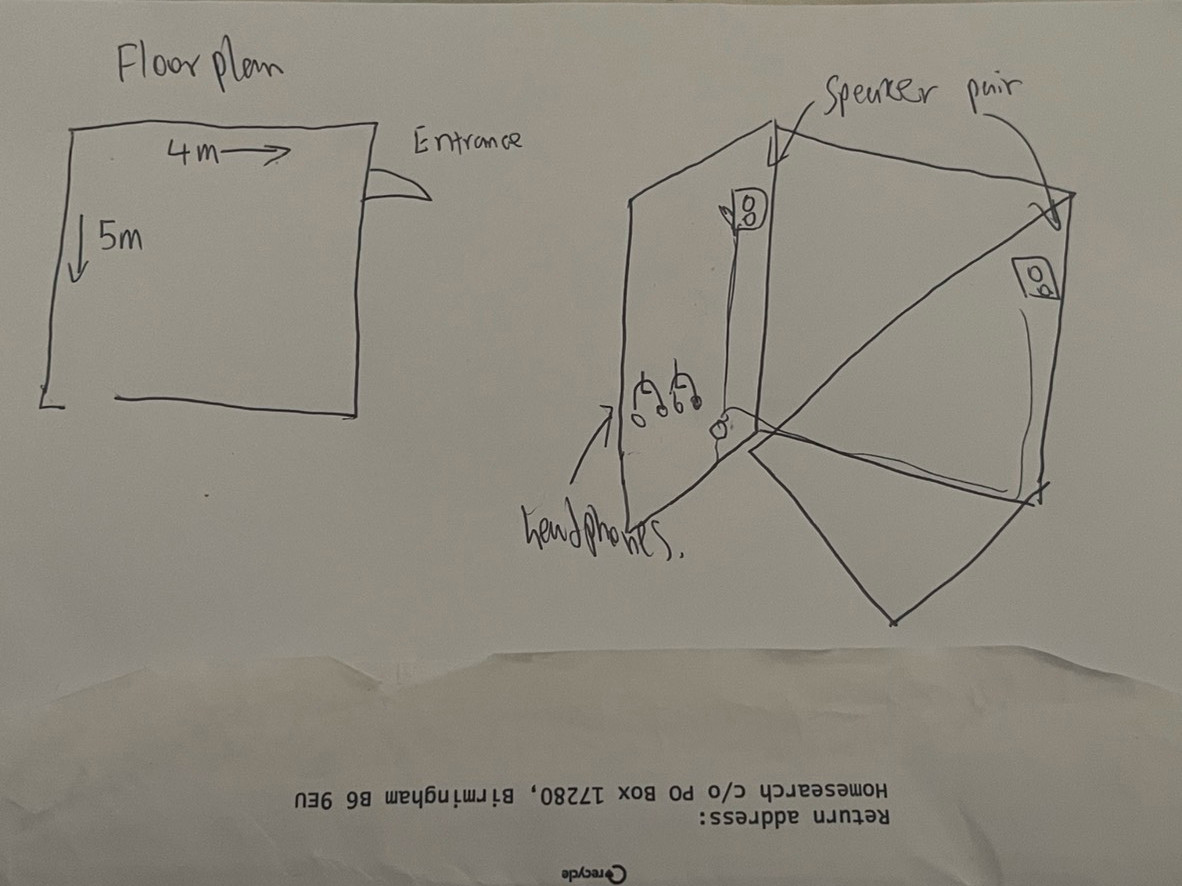 Floor plan
4m
Entrance
5m
Speaker pair
headphones.
Return address:
Homesearch c/o PO Box 17280, Birmingham B6 9EU
recycle